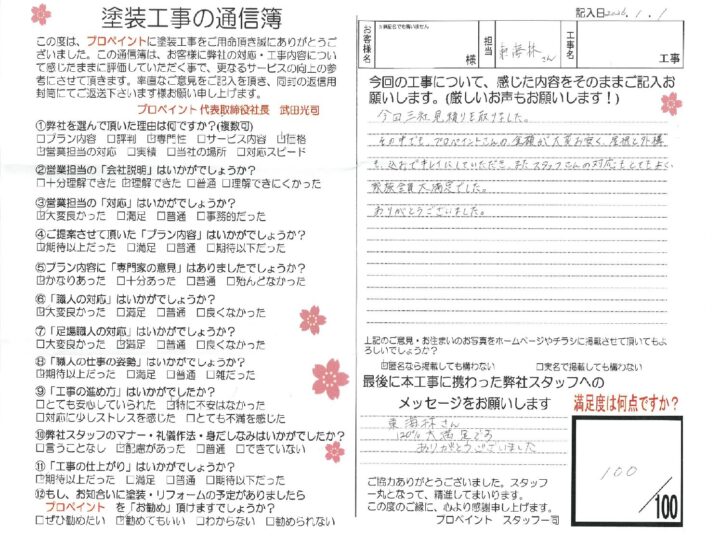 塗装工事の通信簿
この度は、プロペイントに塗装工事をご用命頂き誠にありがとうご
ざいました。この通信簿は、お客様に弊社の対応・工事内容につい
て感じたままに評価していただく事で、更なるサービスの向上の参
考にさせて頂きます。率直なご意見をご記入を頂き、同封の返信用
封筒にてご返送下さいます様お願い申し上げます。
プロペイント 代表取締役社長 武田光司
①弊社を選んで頂いた理由は何ですか?(複数可)
□プラン内容 □評判 ☑専門性 □サービス内容 ☑価格
☑営業担当の対応 □実績 □当社の場所 □対応スピード
②営業担当の「会社説明」はいかがでしょうか?
□十分理解できた ☑理解できた □普通 □理解できにくかった
③営業担当の「対応」はいかがでしょうか?
☑大変良かった □満足 □普通 □事務的だった
④ご提案させて頂いた「プラン内容」はいかがでしょうか?
☑期待以上だった □満足 □普通 □期待以下だった
⑤プラン内容に「専門家の意見」はありましたでしょうか?
☑かなりあった □十分あった □普通 □殆んどなかった
⑥「職人の対応」はいかがでしょうか?
☑大変良かった □満足 □普通 □良くなかった
⑦「足場職人の対応」はいかがでしょうか?
□大変良かった ☑満足 □普通 □良くなかった
⑧「職人の仕事の姿勢」はいかがでしょうか?
☑期待以上だった □満足 □普通 □雑だった
⑨「工事の進め方」はいかがでしたか?
□とても安心していられた ☑特に不安はなかった
□対応に少しストレスを感じた □とても不満を感じた
⑩弊社スタッフのマナー・礼儀作法・身だしなみはいかがでしたか?
□言うことなし ☑配慮があった □普通 □できていない
⑪「工事の仕上がり」はいかがでしょうか?
☑期待以上だった □満足 □普通 □期待以下だった
⑫もし、お知合いに塗装・リフォームの予定がありましたら
プロペイント を「お勧め」頂けますでしょうか?
□ぜひ勧めたい ☑勧めてもいい □わからない □勧められない
記入日2026.1.1
お客様名
※無記名でも構いません
様
担当
東海林さん
工事名
工事
今回の工事について、感じた内容をそのままご記入お
願いします。(厳しいお声もお願いします!)
今回三社見積りを取りました。
その中でも、プロペイントさんの金額が大変お安く、屋根と外構
も込みでキレイにしていただき、またスタッフさんの対応もとてもよく、
家族全員大満足でした。
ありがとうございました。
上記のご意見・お住まいのお写真をホームページやチラシに掲載させて頂いてもよ
ろしいでしょうか?
☑匿名なら掲載しても構わない □実名で掲載しても構わない
最後に本工事に携わった弊社スタッフへの
メッセージをお願いします
満足度は何点ですか?
東海林さん
120%大満足です
ありがとうございました
100
/100
ご協力ありがとうございました。スタッフ
一丸となって、精進してまいります。
この度のご縁に、心より感謝申し上げます。
プロペイント スタッフ一同